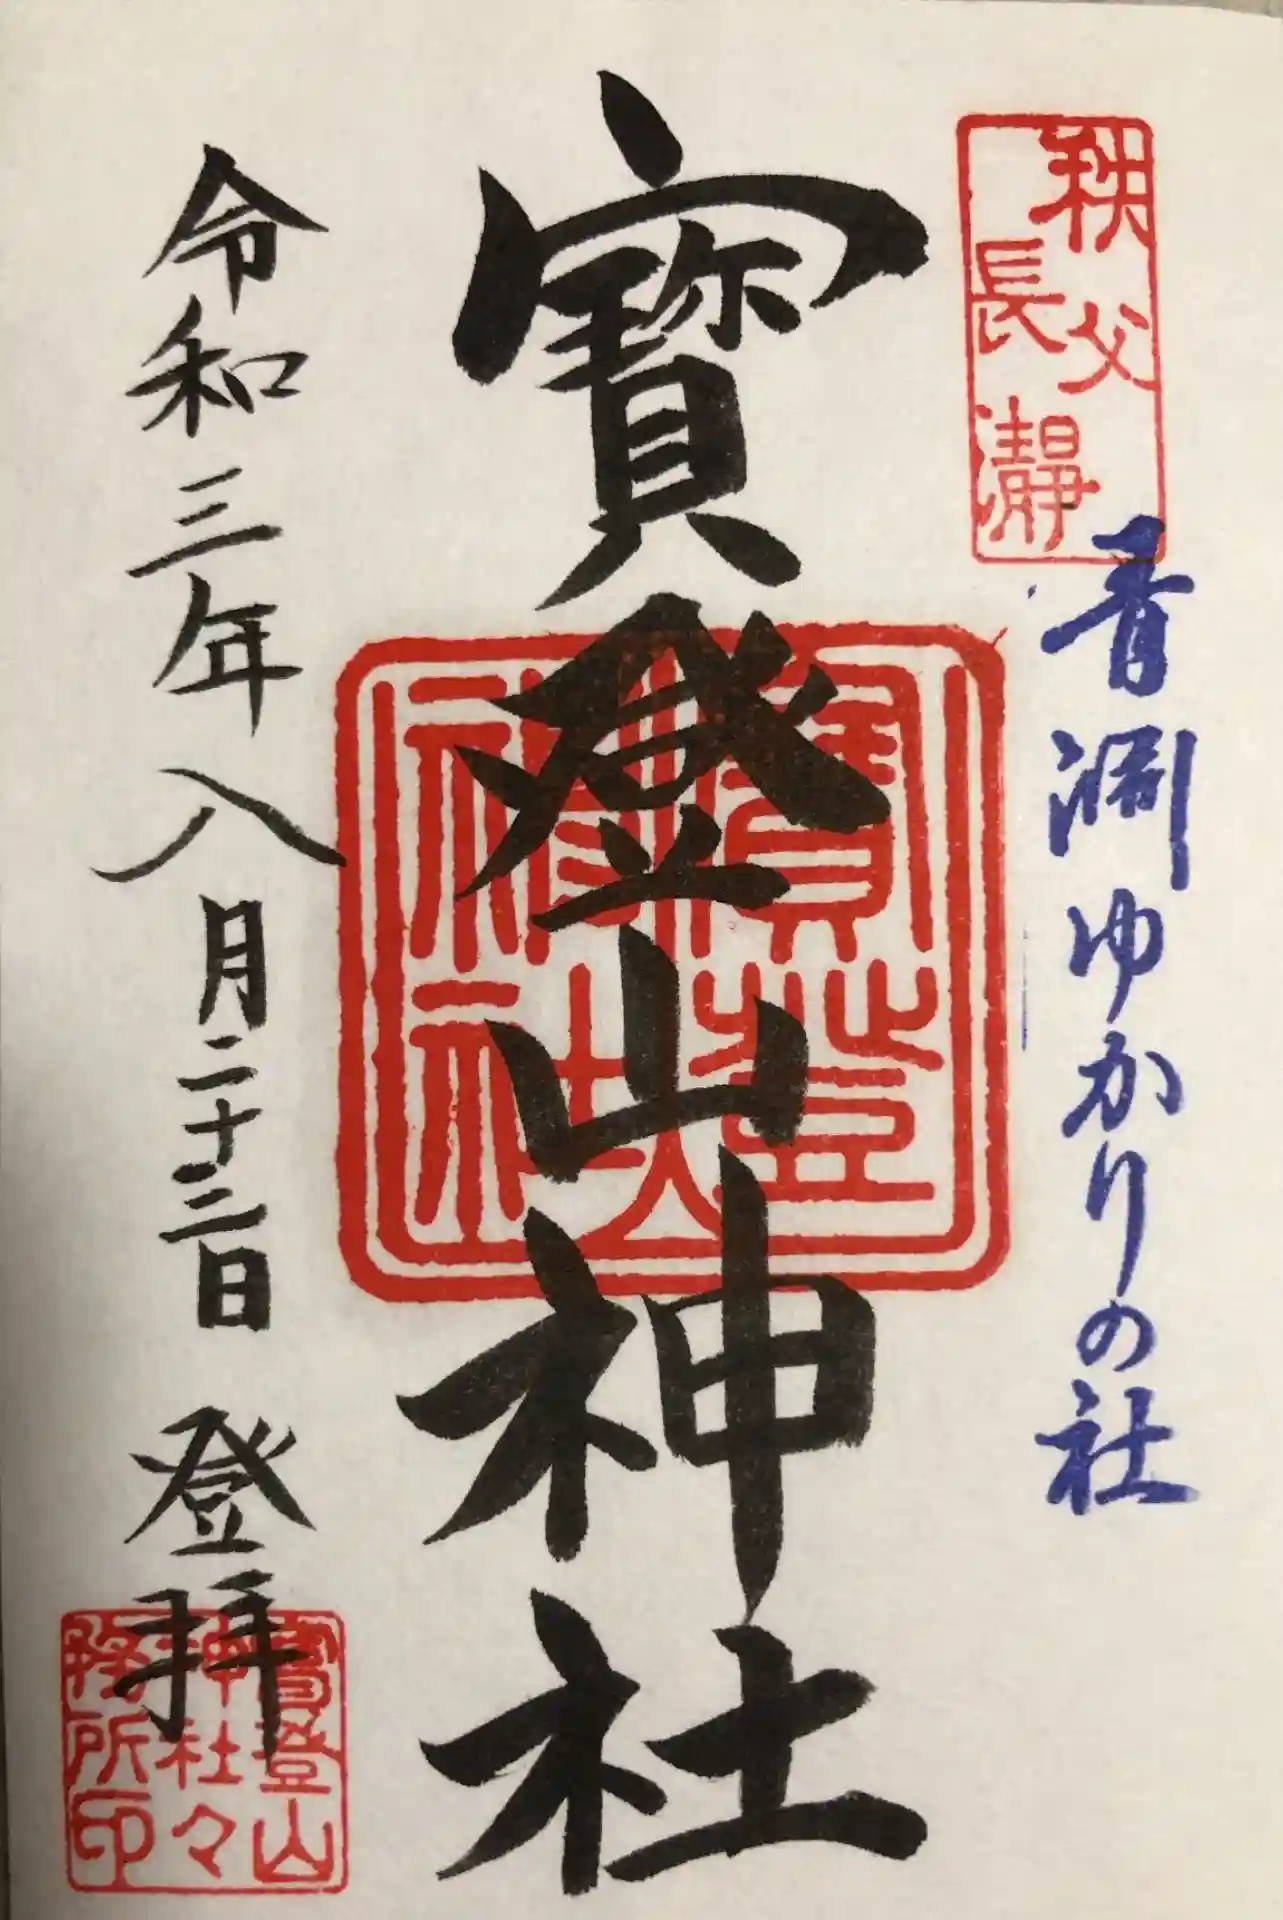 秩父
長瀞
青淵ゆかりの社
寶登山神社
寶登
神社
令和三年八月二十三日 登拝
寶登山
神社々
務所印